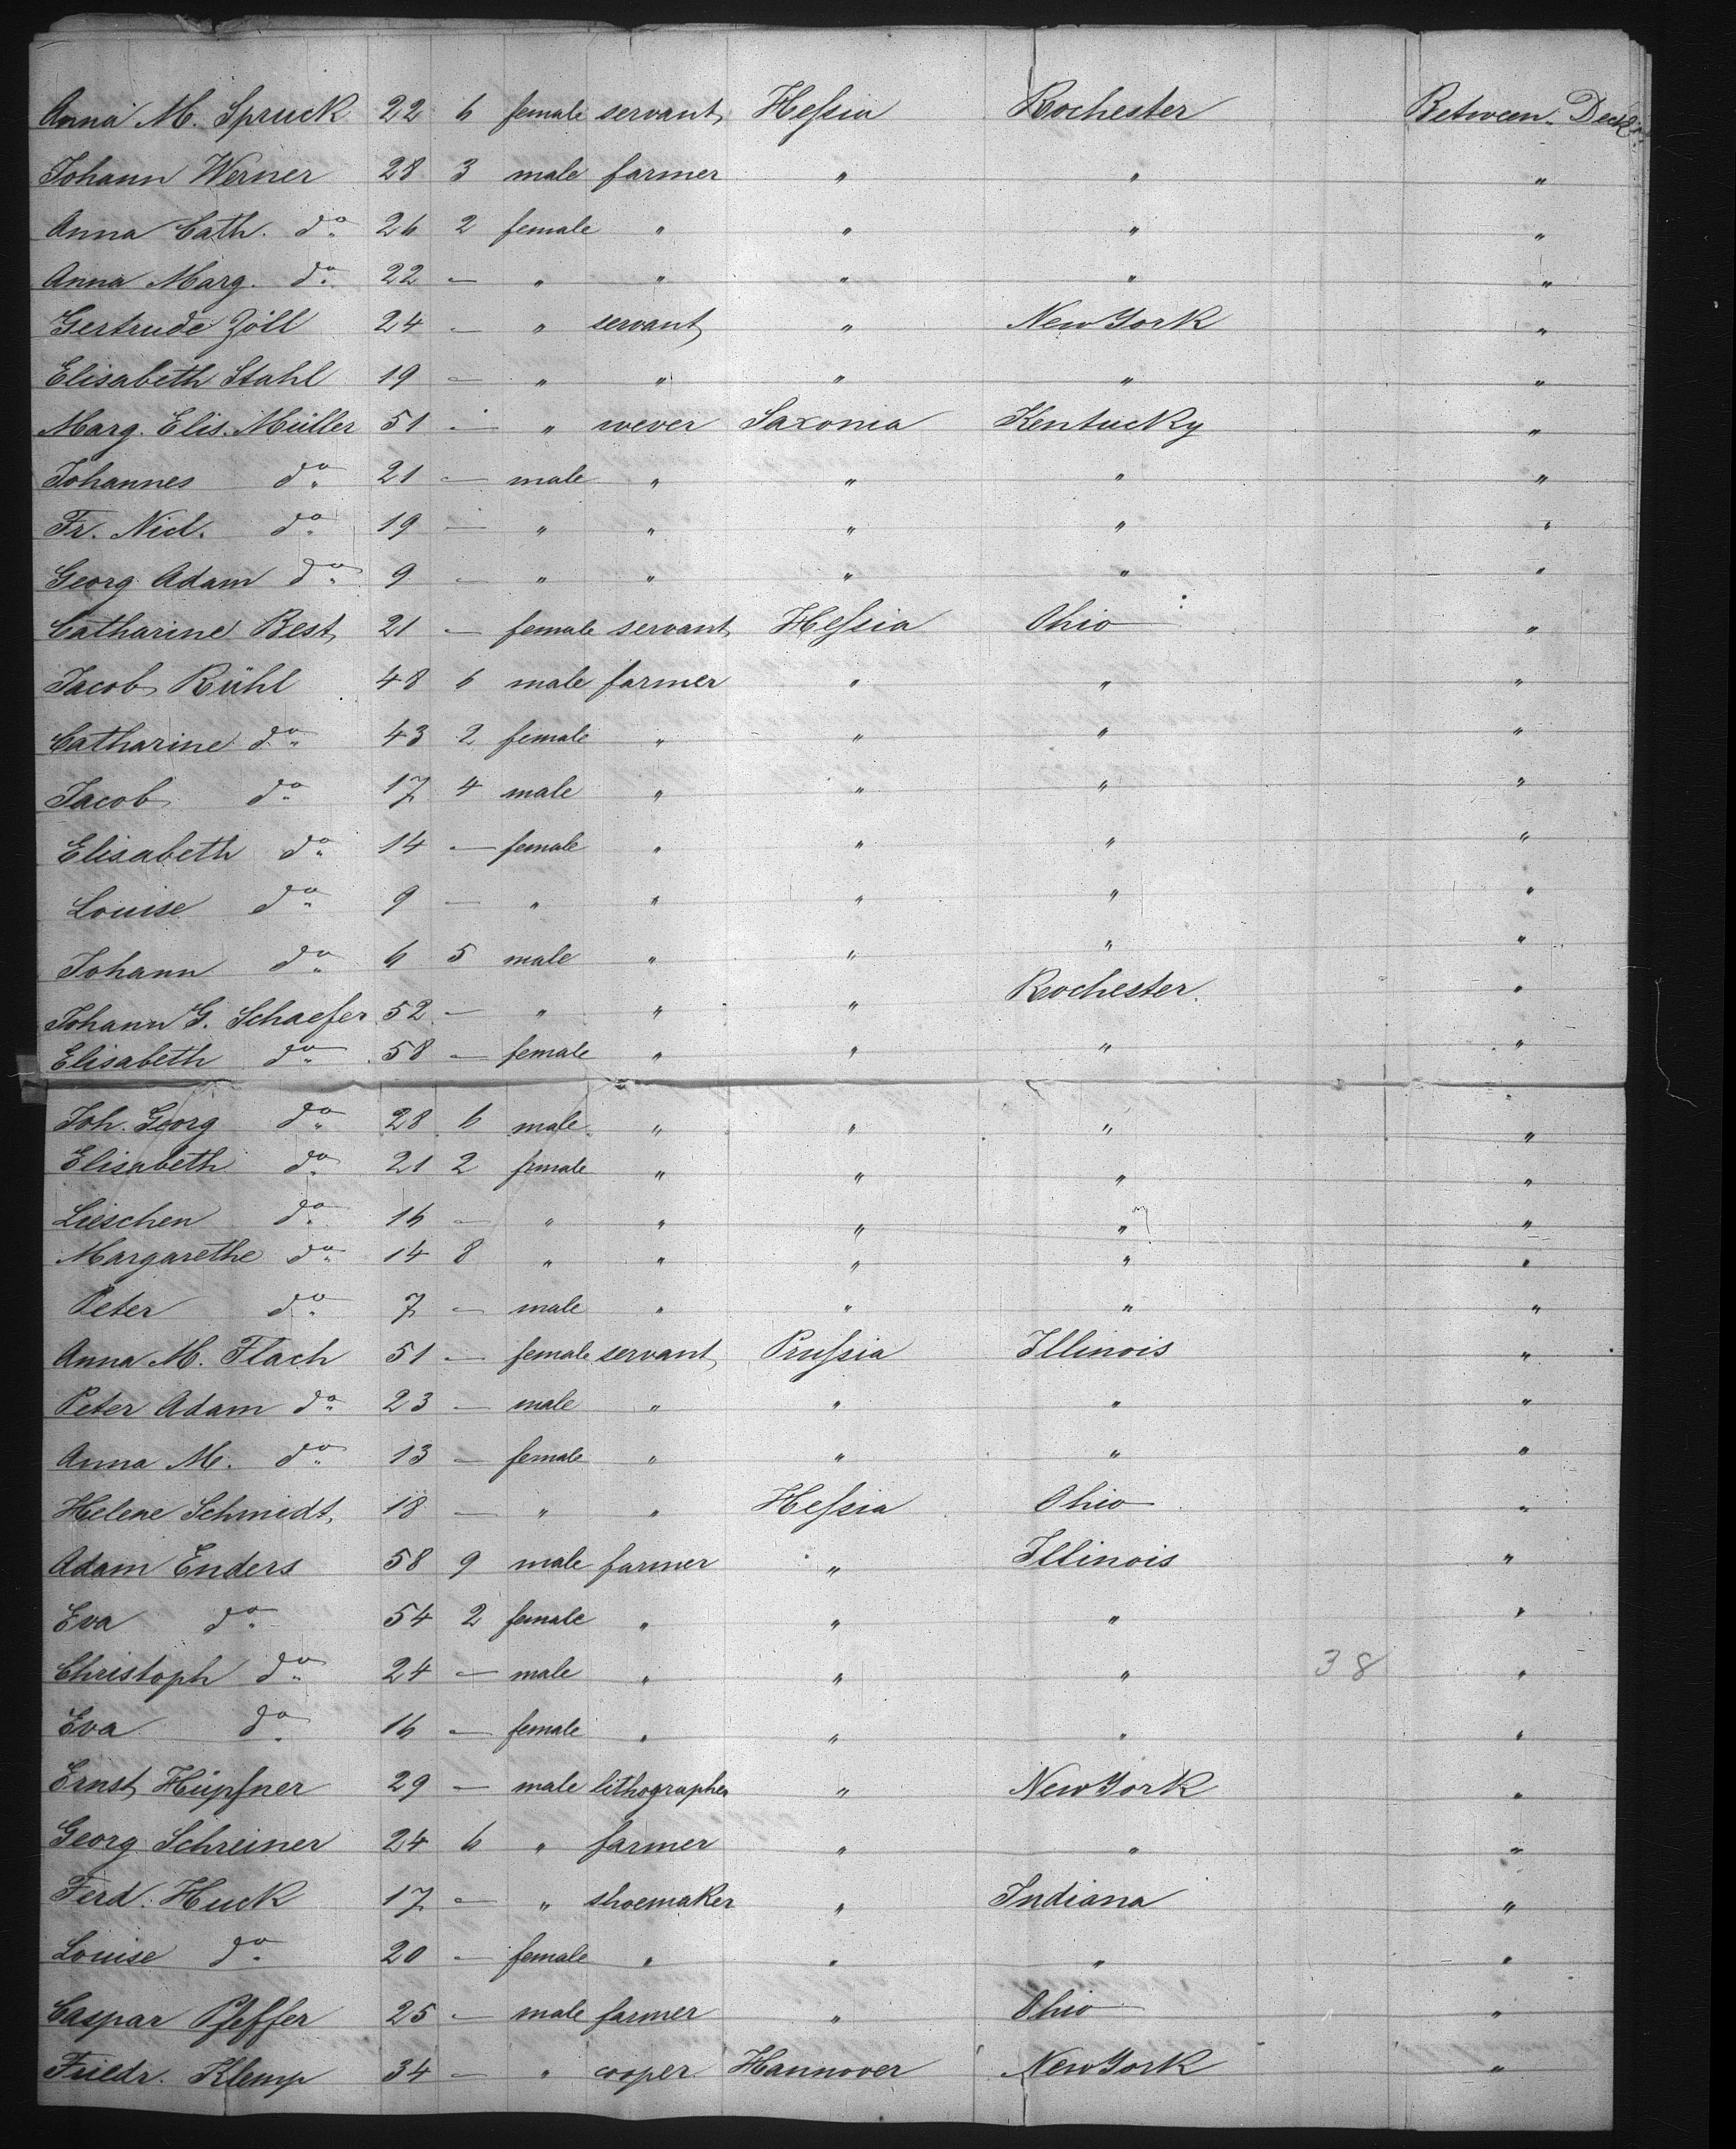 Anna M. Spruck 22 6 female servant Hessia Rochester Between Deck
Johann Werner 28 3 male farmer " " "
Anna Cath. do 26 2 female " " " "
Anna Marg. do 22 — " " " " "
Gertrude Zöll 24 — " servant " New York "
Elisabeth Stahl 19 — " " " " "
Marg. Elis. Müller 51 — " wever Saxonia Kentucky "
Johannes do 21 — male " " " "
Fr. Nicl. do 19 — " " " " "
Georg Adam do 9 — " " " " "
Catharine Best 21 — female servant Hessia Ohio "
Jacob Rühl 48 6 male farmer " " "
Catharine do 43 2 female " " " "
Jacob do 17 4 male " " " "
Elisabeth do 14 — female " " " "
Louise do 9 — " " " " "
Johann do 6 5 male " " " "
Johann G. Schaefer 52 — " " " Rochester. "
Elisabeth do 58 — female " " " "
Joh. Georg do 28 6 male " " " "
Elisabeth do 21 2 female " " " "
Lieschen do 16 — " " " " "
Margarethe do 14 8 " " " " "
Peter do 7 — male " " " "
Anna M. Flach 51 — female servant Prussia Illinois "
Peter Adam do 23 — male " " " "
Anna M. do 13 — female " " " "
Helene Schmidt 18 — " " Hessia Ohio "
Adam Enders 58 9 male farmer " Illinois "
Eva do 54 2 female " " " "
Christoph do 24 — male " " " 38 "
Eva do 16 — female " " " "
Ernst Hüpfner 29 — male lithographer " New York "
Georg Schreiner 24 6 " farmer " " "
Ferd. Huck 17 — " shoemaker " Indiana "
Louise do 20 — female " " " "
Caspar Pfeffer 25 — male farmer " Ohio "
Friedr. Klemp 34 — " cooper Hannover New York "